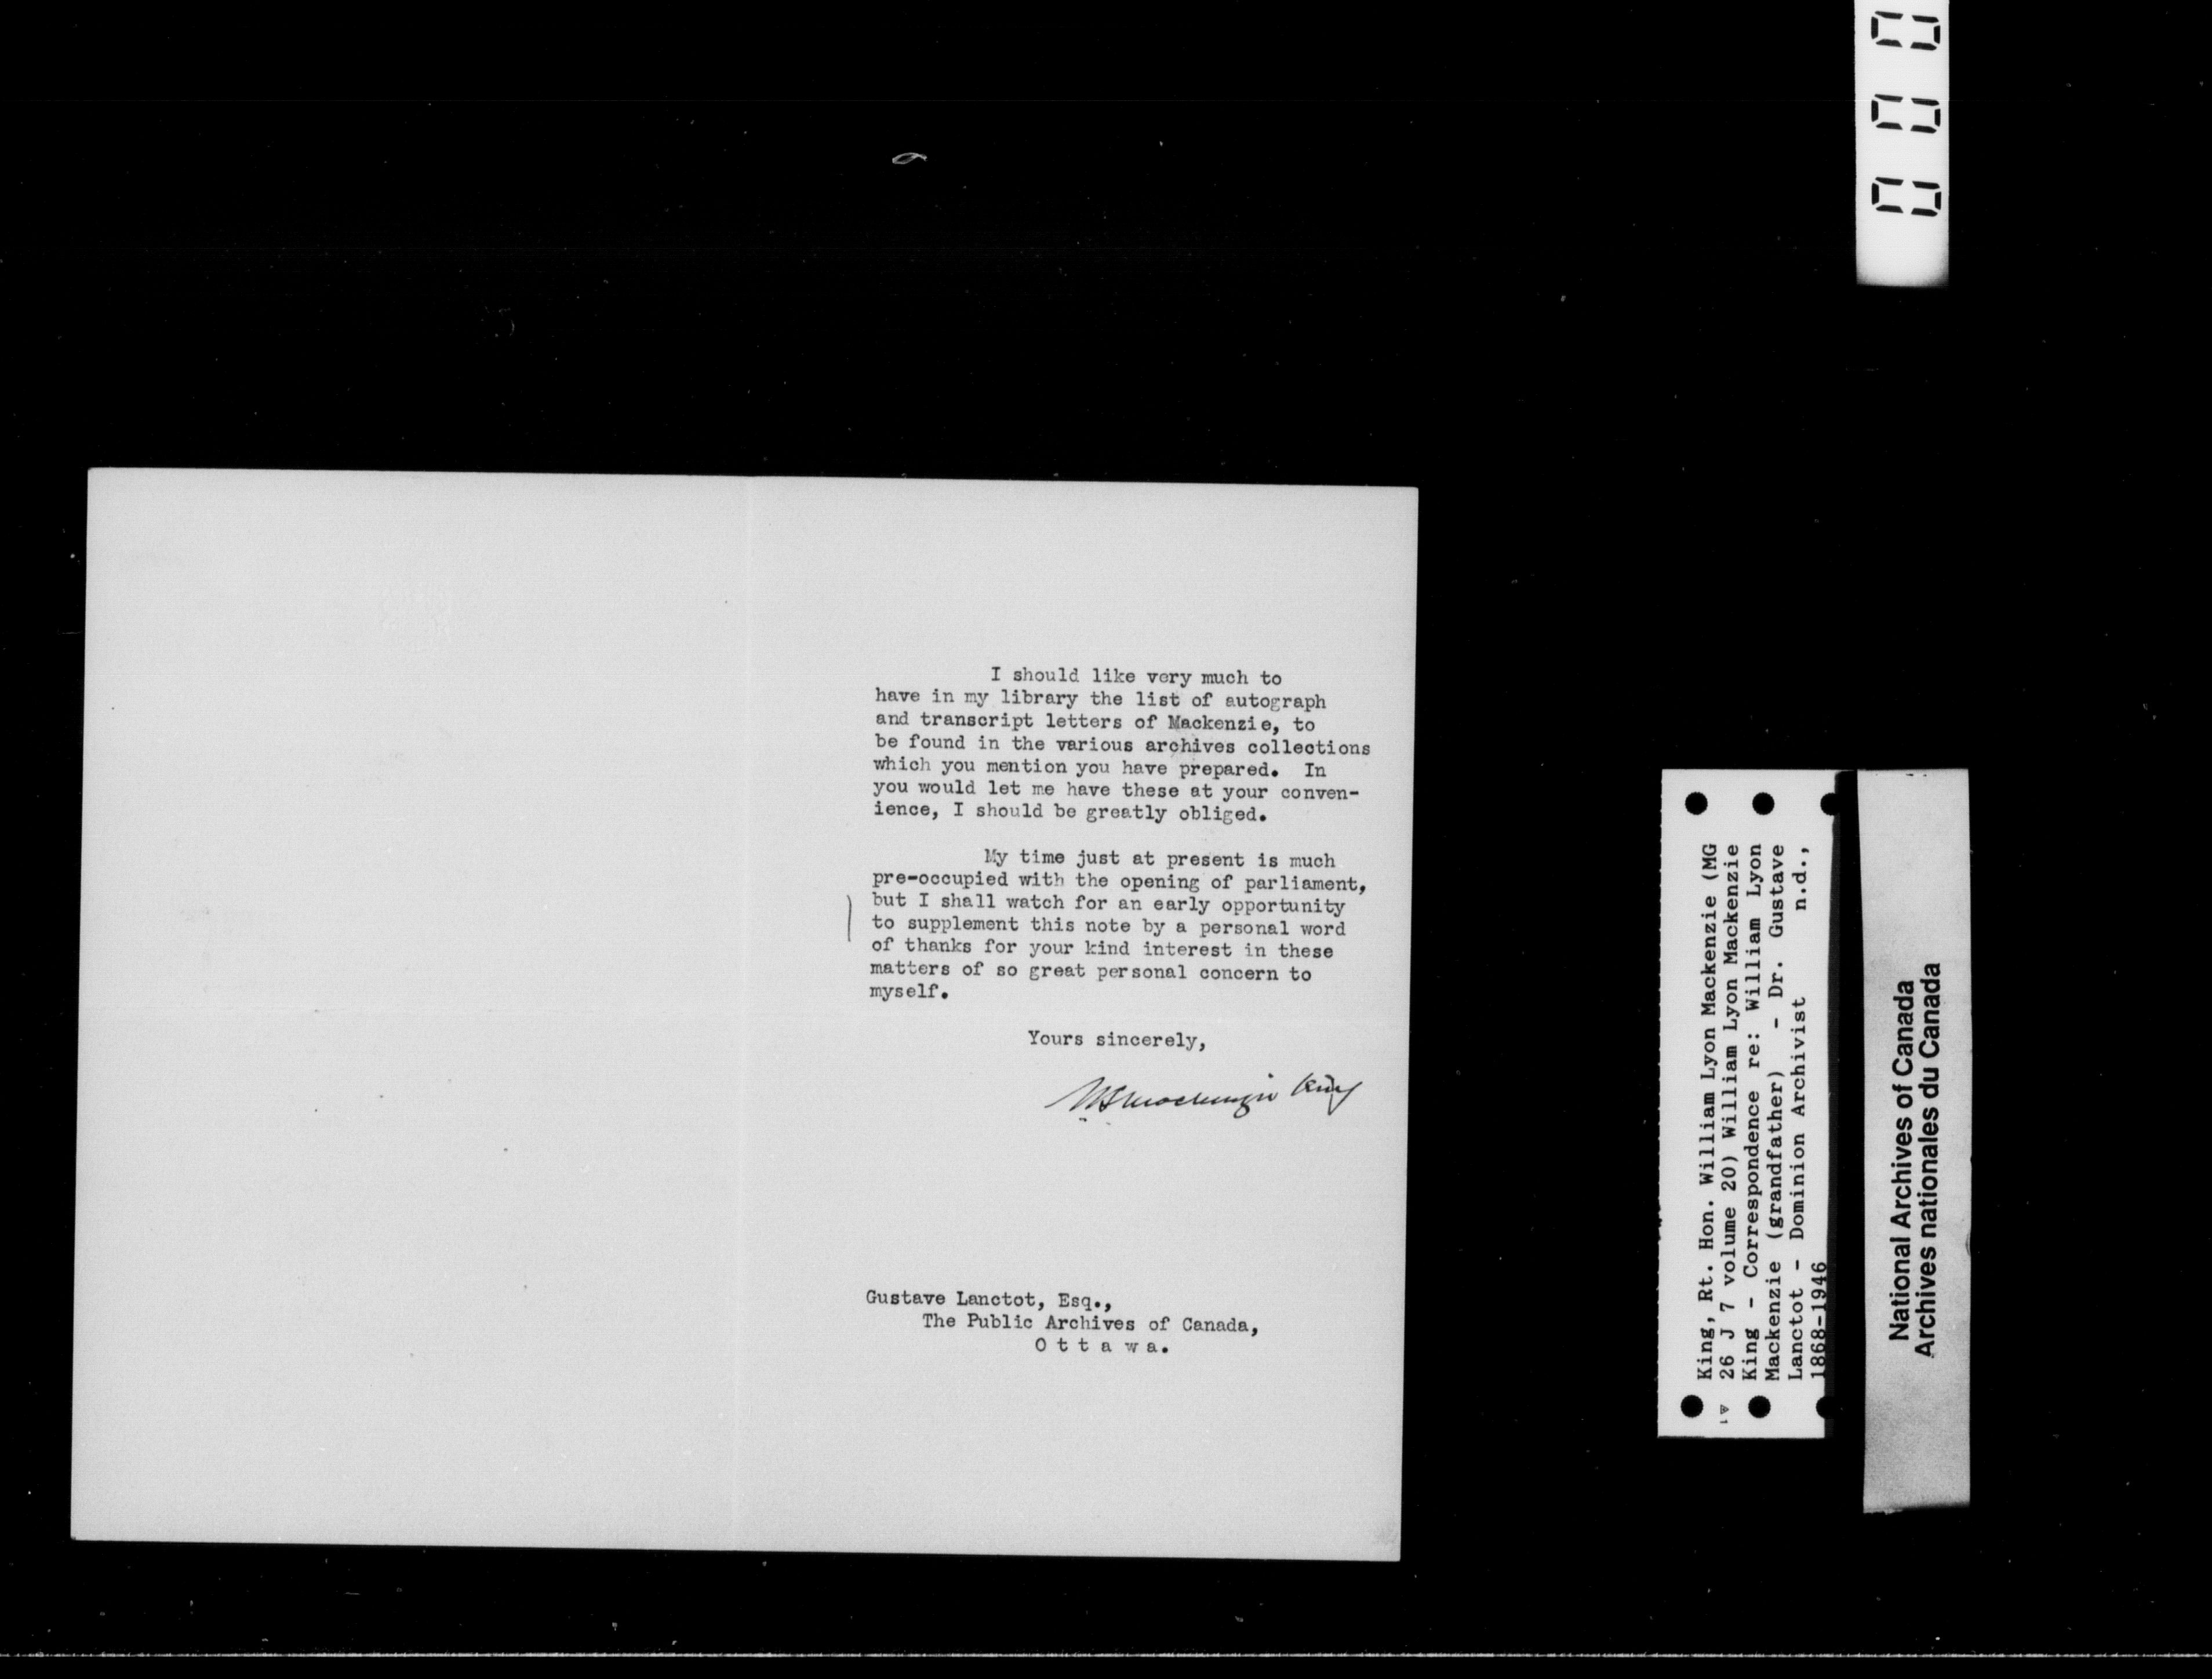 I should like very much to
have in my library the list of autograph
and transcript letters of Mackenzie, to
be found in the various archives collections
which you mention you have prepared. In
you would let me have these at your conven-
ience, I should be greatly obliged.
My time just at present is much
pre-occupied with the opening of parliament,
but I shall watch for an early opportunity
to supplement this note by a personal word
of thanks for your kind interest in these
matters of so great personal concern to
myself.
Yours sincerely,
W L Mackenzie King
Gustave Lanctot, Esq.,
The Public Archives of Canada,
O t t a w a.
King, Rt. Hon. William Lyon Mackenzie (MG
26 J 7 volume 20) William Lyon Mackenzie
King - Correspondence re: William Lyon
Mackenzie (grandfather) - Dr. Gustave
Lanctot - Dominion Archivist n.d.,
1868-1946
National Archives of Canada
Archives nationales du Canada
000